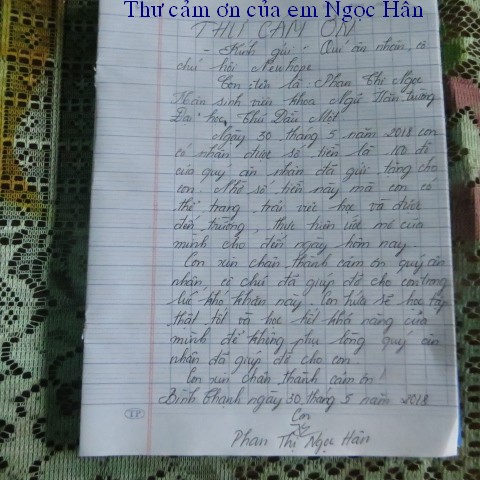 Thư cảm ơn của em Ngọc Hân
THƯ CẢM ƠN
- Kính gửi: Quí ân nhân, cô
chú hội Newhope
Con tên là: Phan Thị Ngọc
Hân sinh viên khoa Ngữ Văn trường
Đại học Thủ Dầu Một.
Ngày 30 tháng 5 năm 2018 con
có nhận được số tiền là 100 đô
của quý ân nhân đã gửi tặng cho
con. Nhờ số tiền này mà con có
thể trang trải việc học và được
đến trường, thực hiện ước mơ của
mình cho đến ngày hôm nay.
Con xin chân thành cảm ơn quý ân
nhân, cô chú đã giúp đỡ cho con trong
lúc khó khăn này. Con hứa sẽ học tập
thật tốt và học hết khả năng của
mình để không phụ lòng quý ân
nhân đã giúp đỡ cho con.
Con xin chân thành cảm ơn!
Bình Thạnh ngày 30 tháng 5 năm 2018
Con
Phan Thị Ngọc Hân